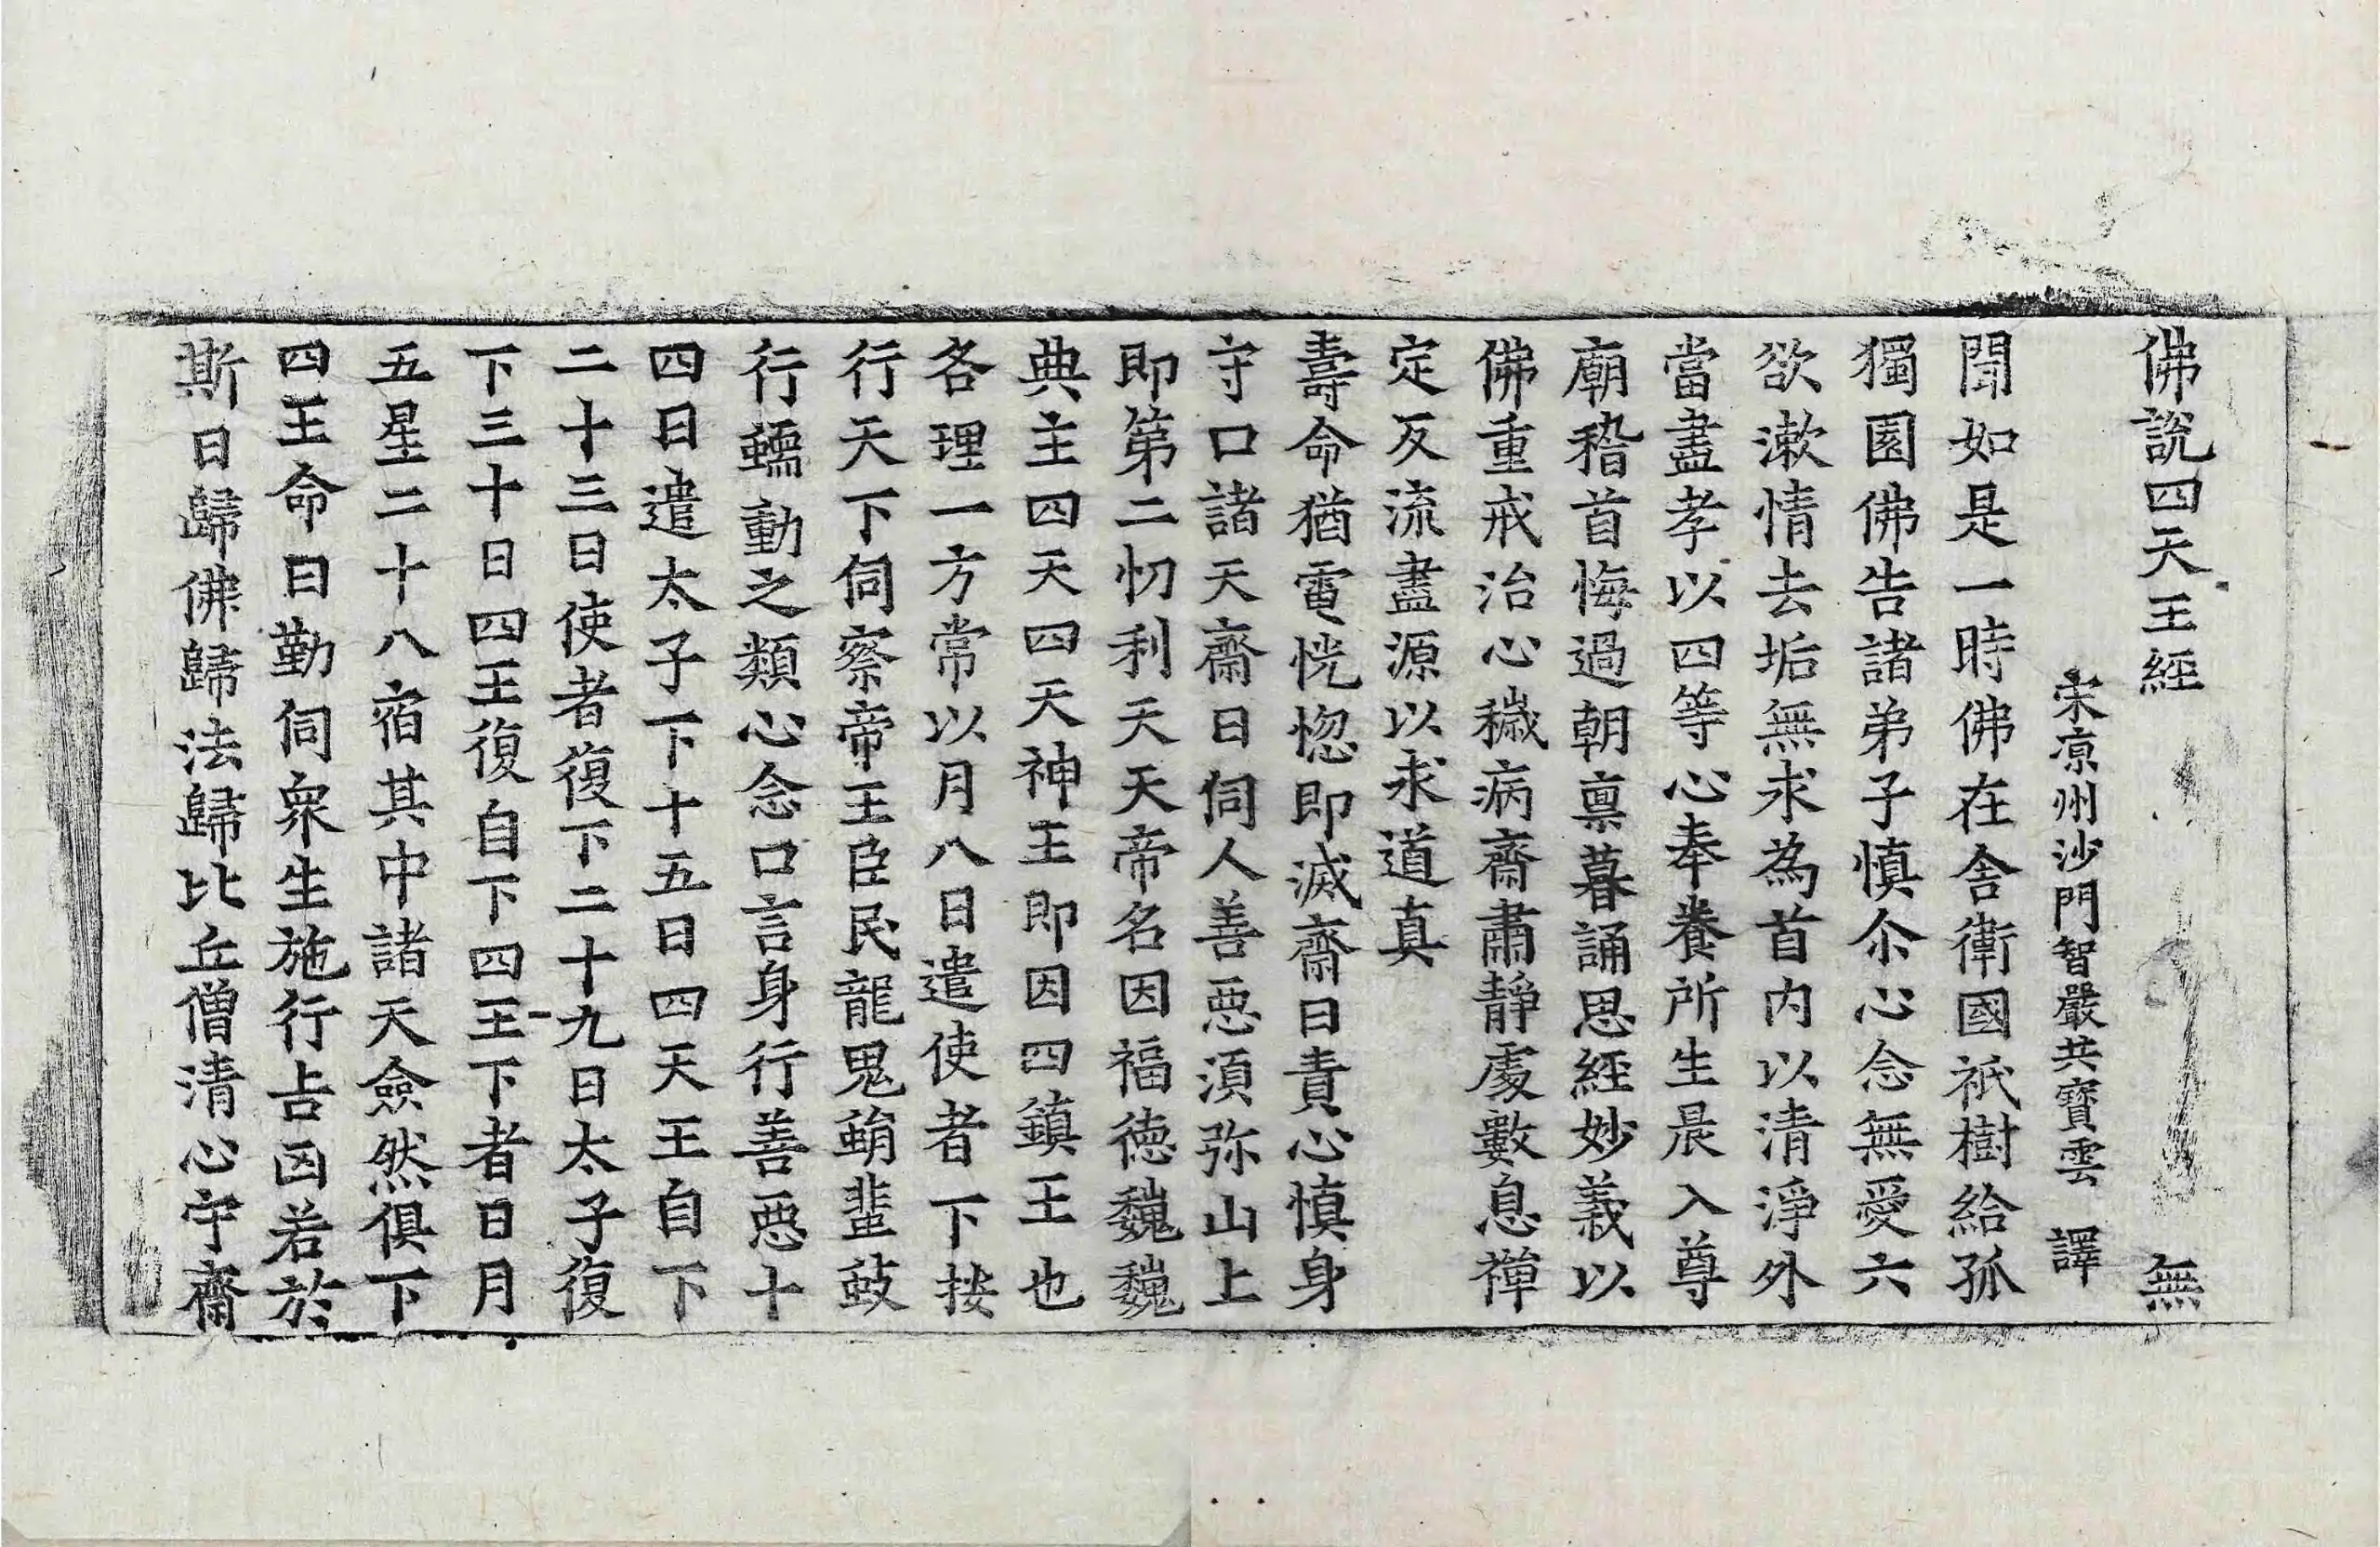 佛說四天王經 無
宋涼州沙門智嚴共寶雲 譯
聞如是一時佛在舍衛國祇樹給孤
獨園佛告諸弟子慎尒心念無愛六
欲漱情去垢無求為首内以清淨外
當盡孝以四等心奉養所生晨入尊
廟稽首悔過朝稟暮誦思經妙義以
佛重戒治心穢病齋肅靜處數息禪
定反流盡源以求道真
壽命猶電恍惚即滅齋日責心慎身
守口諸天齋日伺人善惡須弥山上
即第二忉利天天帝名因福德巍巍
典主四天四天神王即因四鎮王也
各理一方常以月八日遣使者下按
行天下伺察帝王臣民龍鬼蜎蜚蚑
行蠕動之類心念口言身行善惡十
四日遣太子下十五日四天王自下
二十三日使者復下二十九日太子復
下三十日四王復自下四王下者日月
五星二十八宿其中諸天僉然俱下
四王命曰勤伺衆生施行吉凶若於
斯日歸佛歸法歸比丘僧清心守齋